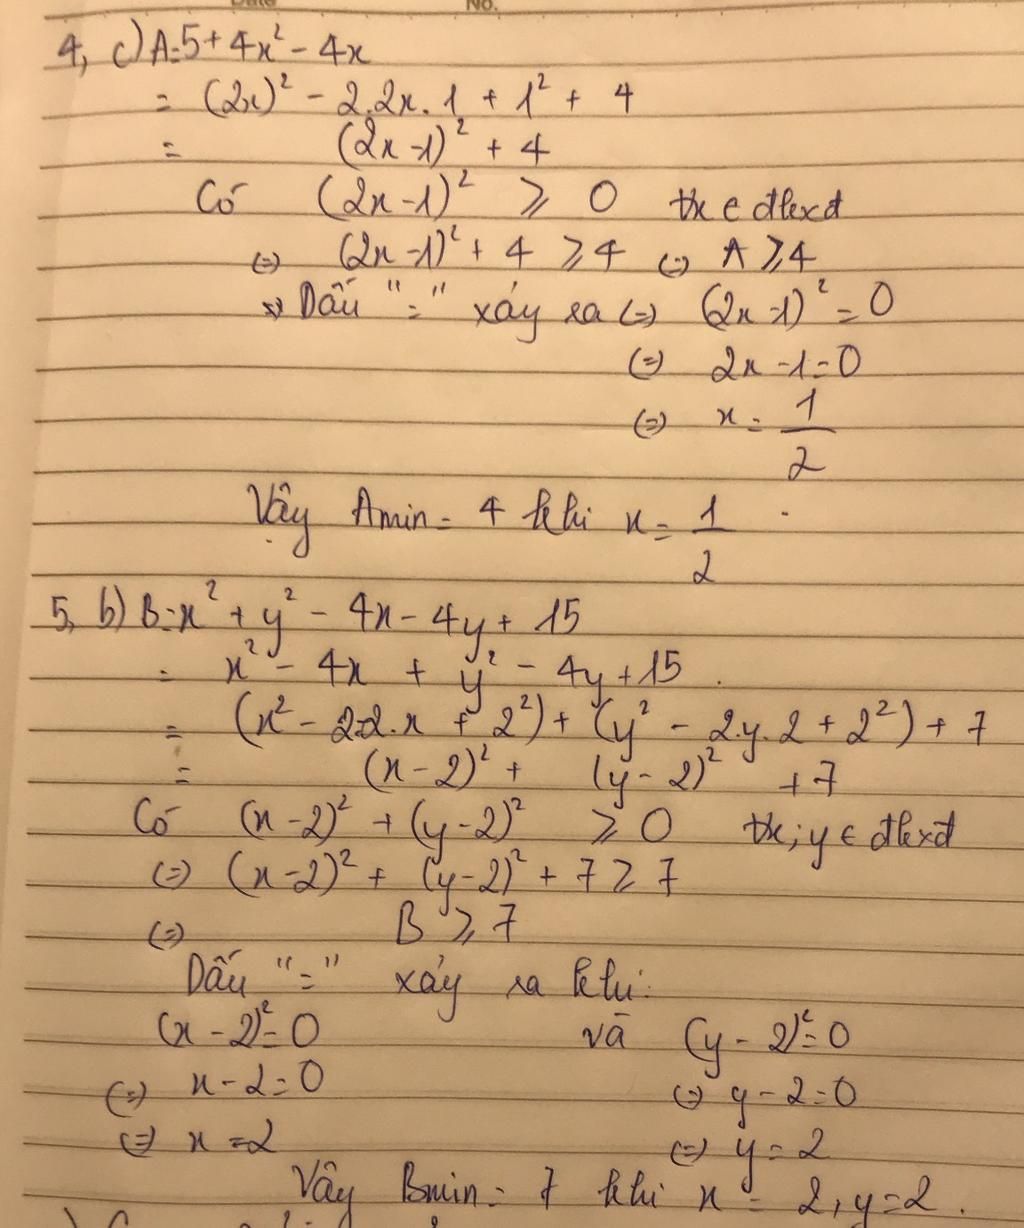 No.
4, c) A=5+4x² - 4x
= (2x)² - 2.2x.1 + 1² + 4
= (2x-1)² + 4
Có (2x-1)² ⩾ 0 tx ∈ đkxđ
(=) (2x-1)² + 4 ⩾ 4 (=) A ⩾ 4
=> Dấu "=" xảy ra (=) (2x-1)² = 0
(=) 2x-1=0
(=) x = 1/2
Vậy Amin = 4 khi x = 1/2
5, b) B=x² + y² - 4x - 4y + 15
= x² - 4x + y² - 4y + 15.
= (x² - 2.2.x + 2²) + (y² - 2.y.2 + 2²) + 7
= (x-2)² + (y-2)² + 7
Có (x-2)² + (y-2)² ⩾ 0 tx; y ∈ đkxđ
(=) (x-2)² + (y-2)² + 7 ⩾ 7
(=) B ⩾ 7
Dấu "=" xảy ra khi:
(x-2)² = 0 và (y-2)² = 0
(=) x-2=0 (=) y-2=0
(=) x=2 (=) y=2
Vậy Bmin = 7 khi x = 2, y=2.